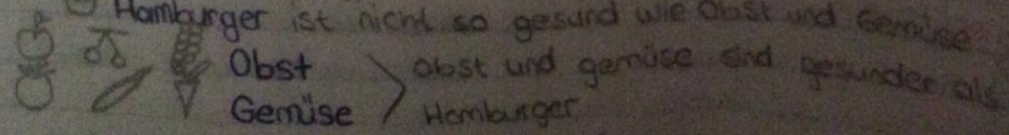 Hamburger ist nicht so gesund wie Obst und Gemüse
Obst
Gemüse
obst und gemüse sind gesunder als
Hamburger